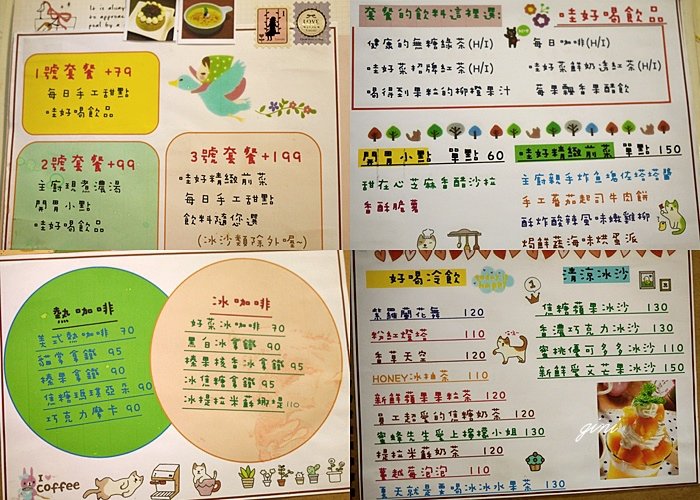 1號套餐 +79
每日手工甜點
哇好喝飲品
2號套餐+99
主廚現煮濃湯
開胃小點
哇好喝飲品
3號套餐+199
哇好精緻前菜
每日手工甜點
飲料隨您選
(冰沙類除外喔~)
套餐的飲料這裡選:
哇好喝飲品
健康的無糖綠茶(H/I)
每日咖啡(H/I)
哇好菜招牌紅茶(H/I)
哇好菜鮮奶透紅茶(H/I)
喝得到果粒的柳橙果汁
莓果飄香果醋飲
開胃小點 單點 60
甜在心芝麻香醋沙拉
香酥脆薯
哇好精緻前菜 單點 150
主廚親手炸魚塊佐塔塔醬
手工蕃茄起司牛肉餅
酥炸酸辣風味嫩雞柳
焗鮮蔬海味烘蛋派
熱咖啡
美式熱咖啡 70
貓掌拿鐵 95
榛果拿鐵 90
焦糖瑪琪亞朵 90
巧克力摩卡 90
冰咖啡
好菜冰咖啡 70
黑白冰拿鐵 90
榛果核香冰拿鐵 95
冰焦糖拿鐵 95
冰提拉米蘇娜堤 110
I
coffee
好喝冷飲
紫羅蘭花舞 120
粉紅燈塔 110
香草天空 120
HONEY冰柚茶 110
新鮮蘋果果粒茶 120
員工超愛的焦糖奶茶 120
蜜蜂先生愛上檸檬小姐 130
提拉米蘇奶茶 110
蔓越莓泡泡 110
夏天就是要喝冰冰水果茶 130
清涼冰沙
焦糖蘋果冰沙 130
香濃巧克力冰沙 130
蜜桃優可多多冰沙 110
新鮮愛文芒果冰沙 150